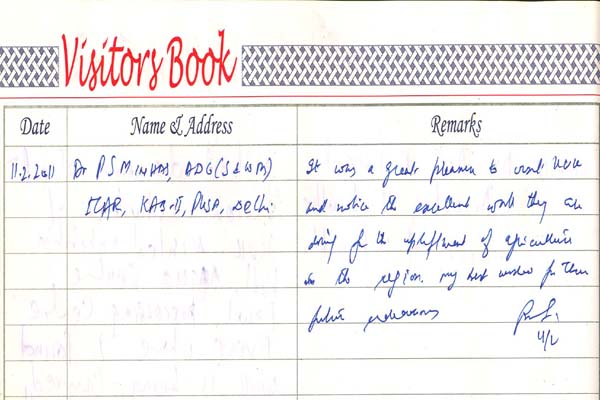 Visitors Book
Date Name & Address Remarks
11.2.2011 Dr P S MINHAS, ADG(S&WM) It was a great pleasure to visit here
ICAR, KAB-II, PUSA, Delhi. and notice the excellent work they are
doing for the upliftment of agriculture
in the region. My best wishes for their
future endeavours
11/2